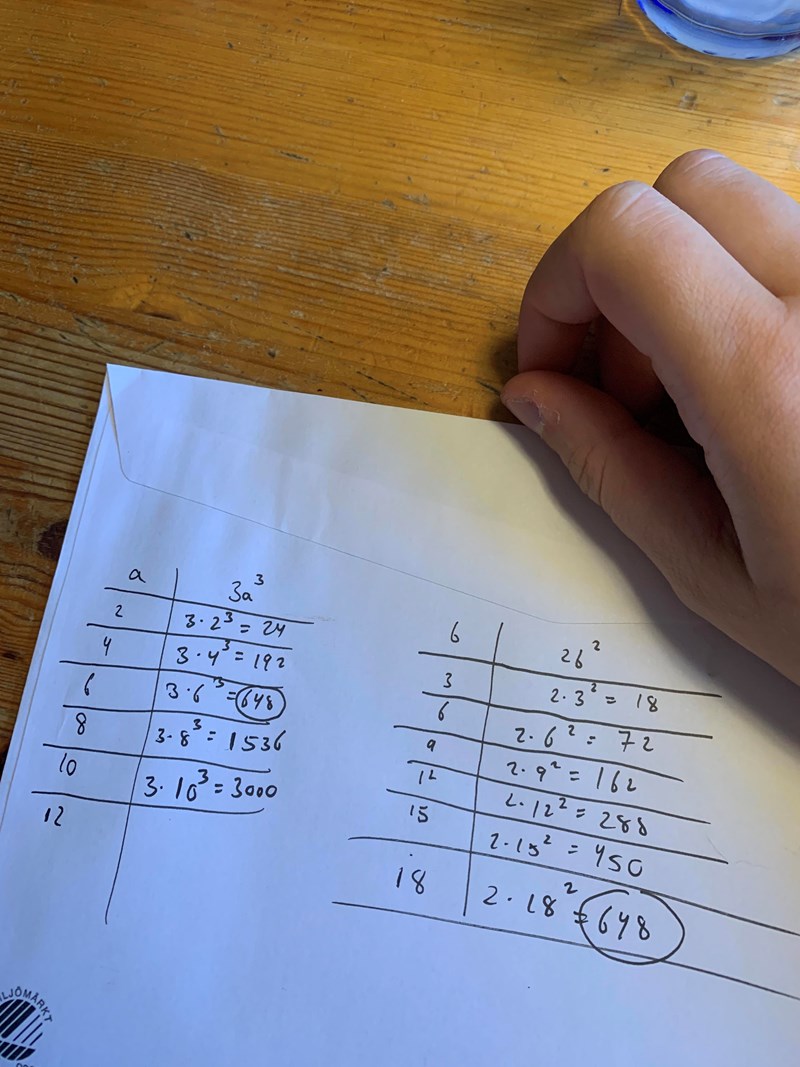 a 3a³
2 3·2³ = 24
4 3·4³ = 192
6 3·6³ = 648
8 3·8³ = 1536
10 3·10³ = 3000
12
b 2b²
3 2·3² = 18
6 2·6² = 72
9 2·9² = 162
12 2·12² = 288
15 2·15² = 450
18 2·18² = 648
LJÖMÄRKT